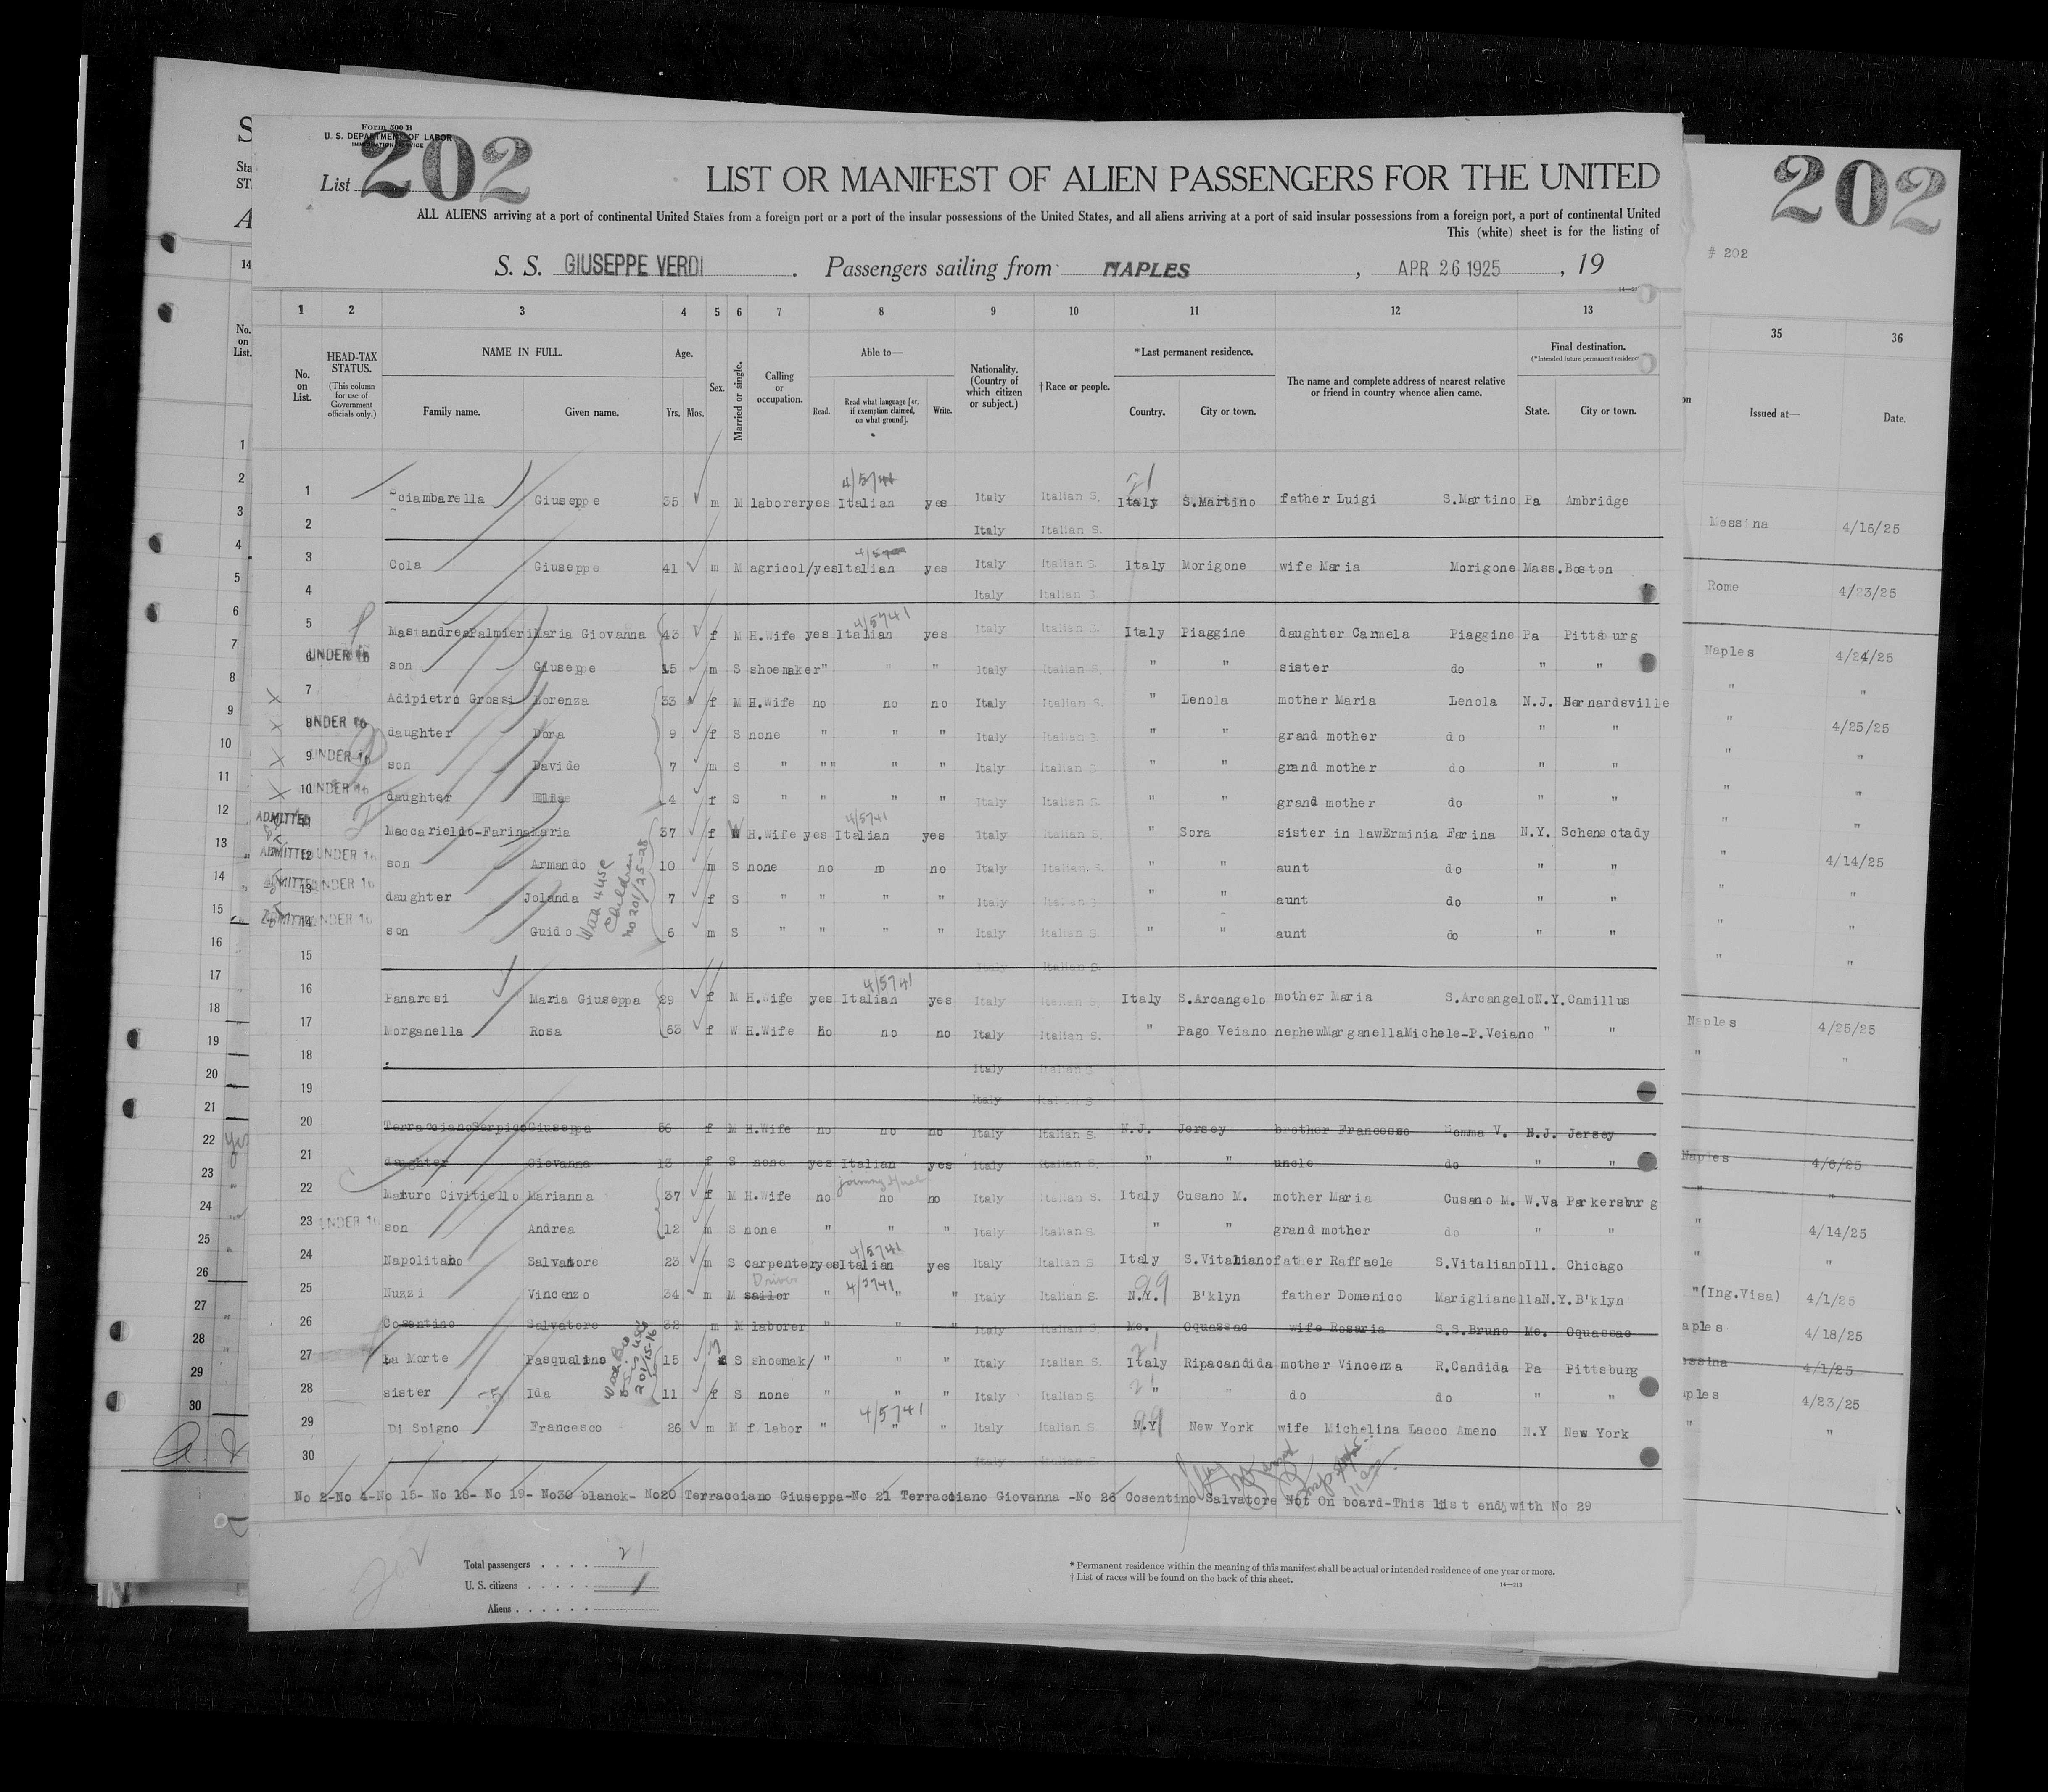 Form 500 B
U. S. DEPARTMENT OF LABOR
IMMIGRATION SERVICE
List 202
202
# 202
LIST OR MANIFEST OF ALIEN PASSENGERS FOR THE UNITED
ALL ALIENS arriving at a port of continental United States from a foreign port or a port of the insular possessions of the United States, and all aliens arriving at a port of said insular possessions from a foreign port, a port of continental United
This (white) sheet is for the listing of
S. S. GIUSEPPE VERDI . Passengers sailing from NAPLES , APR 26 1925 , 19
1 2 3 4 5 6 7 8 9 10 11 12 13
35 36
No. on List.
HEAD-TAX STATUS. (This column for use of Government officials only.)
NAME IN FULL.
Family name. Given name.
Age.
Yrs. Mos.
Sex.
Married or single.
Calling or occupation.
Able to—
Read. Read what language [or, if exemption claimed, on what ground]. Write.
Nationality. (Country of which citizen or subject.)
† Race or people.
* Last permanent residence.
Country. City or town.
The name and complete address of nearest relative or friend in country whence alien came.
Final destination.
(* Intended future permanent residence)
State. City or town.
Issued at— Date.
1 Sciambarella Giuseppe 35 m M laborer yes Italian yes Italy Italian S. Italy S.Martino father Luigi S.Martino Pa Ambridge
2 Italy Italian S.
3 Cola Giuseppe 41 m M agricol/ yes Italian yes Italy Italian S. Italy Morigone wife Maria Morigone Mass. Boston
4 Italy Italian S.
5 Masiandrea Palmieri Maria Giovanna 43 f M H.Wife yes Italian yes Italy Italian S. Italy Piaggine daughter Carmela Piaggine Pa Pittsburg
6 UNDER 16 son Giuseppe 15 m S shoemaker " " " Italy Italian S. " " sister do " "
7 Adipietro Grossi Lorenza 33 f M H.Wife no no no Italy Italian S. " Lenola mother Maria Lenola N.J. Bernardsville
8 UNDER 16 daughter Dora 9 f S none " " " Italy Italian S. " " grand mother do " "
9 UNDER 16 son Davide 7 m S " "" " " Italy Italian S. " " grand mother do " "
10 UNDER 16 daughter Elisa 4 f S " " " " Italy Italian S. " " grand mother do " "
11 ADMITTED Maccariello-Farina Maria 37 f W H.Wife yes Italian yes Italy Italian S. " Sora sister in law Erminia Farina N.Y. Schenectady
12 ADMITTED UNDER 16 son Armando 10 m S none no no no Italy Italian S. " " aunt do " "
13 ADMITTED UNDER 16 daughter Jolanda 7 f S " " " " Italy Italian S. " " aunt do " "
14 ADMITTED UNDER 16 son Guido 6 m S " " " " Italy Italian S. " " aunt do " "
15 Italy Italian S.
16 Panaresi Maria Giuseppa 29 f M H.Wife yes Italian yes Italy Italian S. Italy S.Arcangelo mother Maria S.Arcangelo N.Y. Camillus
17 Morganella Rosa 63 f W H.Wife no no no Italy Italian S. " Pago Veiano nephew Marganella Michele-P.Veiano " "
18 Italy Italian S.
19 Italy Italian S.
20 Terracciano Serpico Giuseppa 56 f M H.Wife no no no Italy Italian S. N.J. Jersey brother Francesco Somma V. N.J. Jersey
21 daughter Giovanna 13 f S none yes Italian yes Italy Italian S. " " uncle do " "
22 Maturo Civitiello Marianna 37 f M H.Wife no no no Italy Italian S. Italy Cusano M. mother Maria Cusano M. W.Va Parkersburg
23 UNDER 16 son Andrea 12 m S none " " " Italy Italian S. " " grand mother do " "
24 Napolitano Salvatore 23 m S carpenter yes Italian yes Italy Italian S. Italy S.Vitaliano father Raffaele S.Vitaliano Ill. Chicago
25 Nuzzi Vincenzo 34 m M sailor Driver " " " Italy Italian S. N.Y. B'klyn father Domenico Mariglianella N.Y. B'klyn
26 Cosentino Salvatore 32 m M laborer " " " Italy Italian S. Me. Oquassac wife Rosaria S.S.Bruno Me. Oquassac
27 La Morte Pasqualino 15 S shoemak/ " " " Italy Italian S. Italy Ripacandida mother Vincenza R.Candida Pa Pittsburg
28 sister Ida 11 f S none " " " Italy Italian S. " " do do " "
29 Di Spigno Francesco 26 m M f/labor " " " Italy Italian S. N.Y New York wife Michelina Lacco Ameno N.Y New York
30 Italy Italian S.
Messina 4/16/25
Rome 4/23/25
Naples 4/24/25
" "
" 4/25/25
" "
" "
" "
" 4/14/25
" "
" "
" "
Naples 4/25/25
" "
Naples 4/6/25
" "
" 4/14/25
" "
"(Ing.Visa) 4/1/25
aples 4/18/25
ssina 4/1/25
aples 4/23/25
" "
No 2-No 4-No 15- No 18- No 19- No30 blanck- No20 Terracciano Giuseppa-No 21 Terracciano Giovanna -No 26 Cosentino Salvatore Not On board-This list ends with No 29
Total passengers . . . . 21
U. S. citizens . . . . .
Aliens . . . . . .
* Permanent residence within the meaning of this manifest shall be actual or intended residence of one year or more.
† List of races will be found on the back of this sheet.
14—213